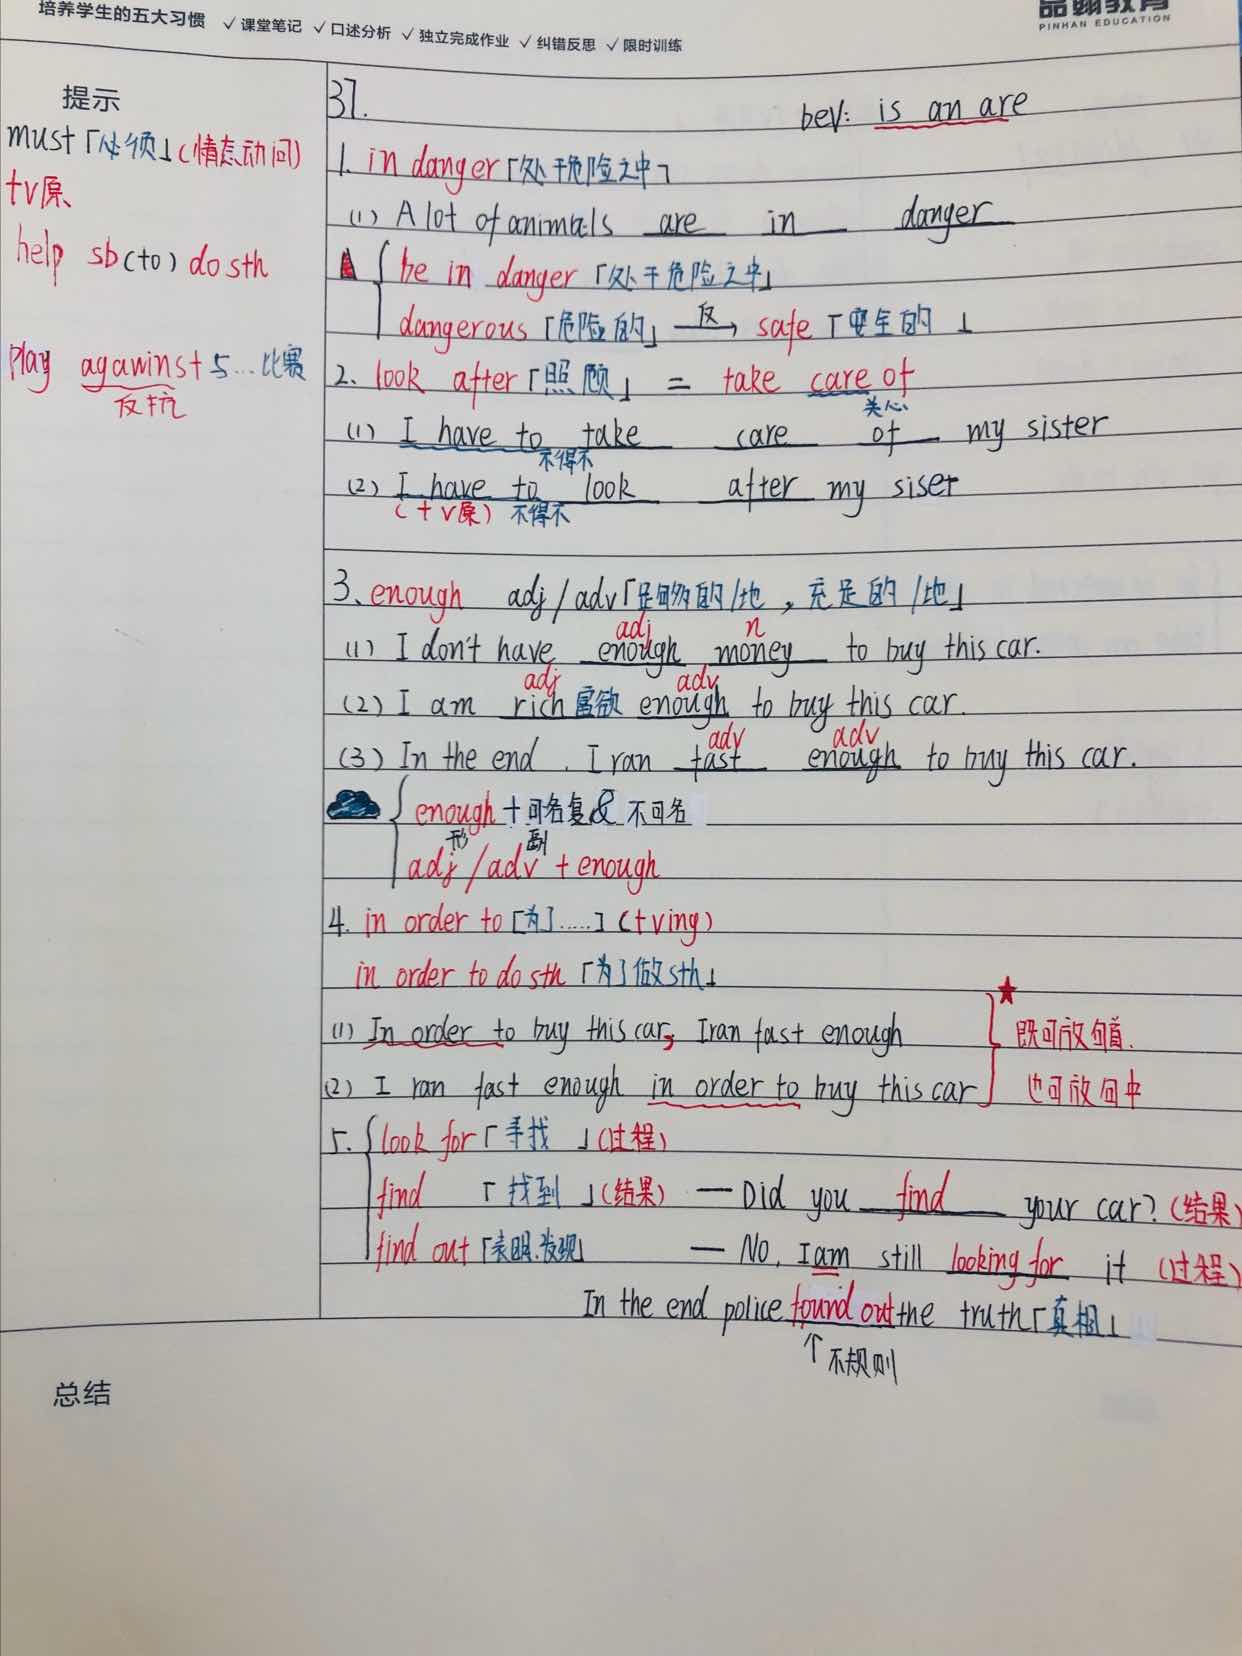 培养学生的五大习惯 ✓课堂笔记 ✓口述分析 ✓独立完成作业 ✓纠错反思 ✓限时训练
品翰教育
PINHAN EDUCATION
提示
must「必须」(情态动词)
+v原
help sb(to) do sth
play agawinst 与...比赛
反抗
37.
bev: is an are
1. in danger「处于危险之中」
(1) A lot of animals are in danger
be in danger「处于危险之中」
dangerous「危险的」 反→ safe「安全的」
2. look after「照顾」 = take care of
关心
(1) I have to take care of my sister
不得不
(2) I have to look after my siser
(+v原) 不得不
3、enough adj/adv「足够的/地,充足的/地」
adj n
(1) I don't have enough money to buy this car.
adj adv
(2) I am rich 富欲 enough to buy this car.
adv adv
(3) In the end . I ran fast enough to buy this car.
enough + 可名复 & 不可名
形 副
adj/adv + enough
4. in order to [为了.....] (+ving)
in order to do sth「为了做sth」
(1) In order to buy this car, I ran fast enough
(2) I ran fast enough in order to buy this car
★
既可放句首.
也可放句中
5. look for「寻找」(过程)
find 「找到」(结果) — Did you find your car? (结果)
find out「表明.发现」 — No, I am still looking for it (过程)
In the end police found out the truth「真相」
↑不规则
总结